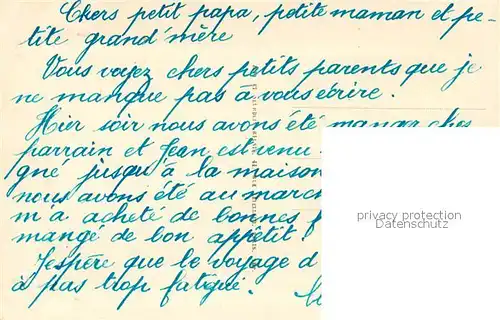 Chers petit papa, petite maman et pe-
tite grand'mère
Vous voyez chers petits parents que je
ne manque pas à vous écrire.
Hier soir nous avons été manger chez
parrain et Jean est venu
gné jusqu'à la maison
nous avons été au march
m'a acheté de bonnes
mangé de bon appétit!
J'espère que le voyage d
à pas trop fatigué.
privacy protection
Datenschutz